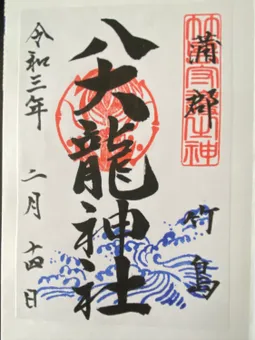 蒲郡
竹島
八大龍神社
令和三年
二月十四日